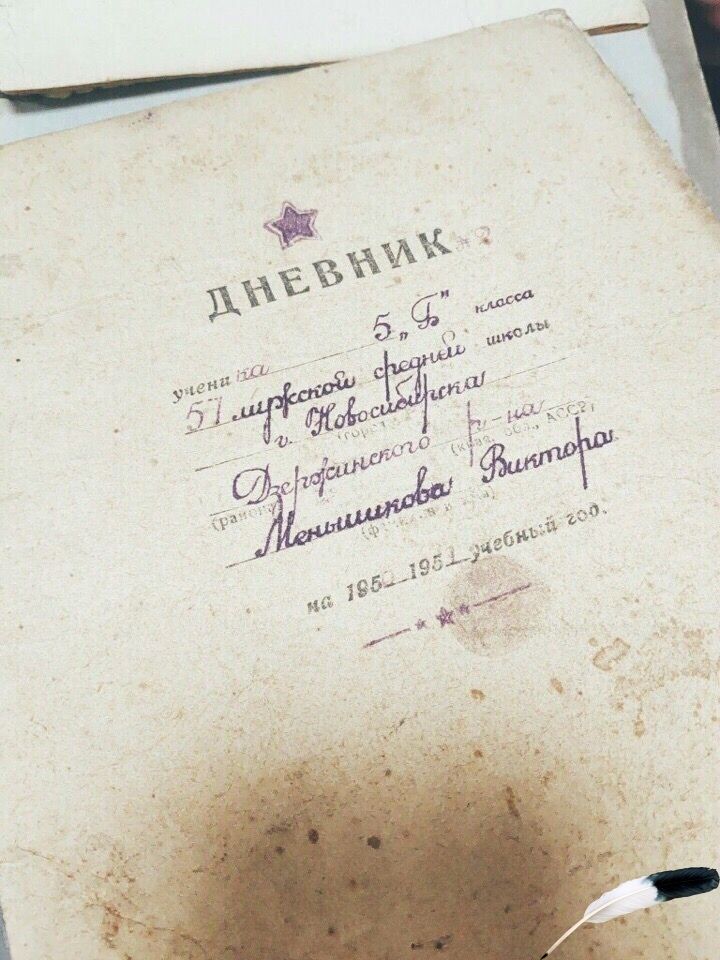 ДНЕВНИК
ученика 5 „Б" класса
57 мужской средней школы
г. Новосибирска
(город
Дзержинского р-на
(район) (край, обл., АССР)
Меньшикова Виктора
на 1950-1951 учебный год.